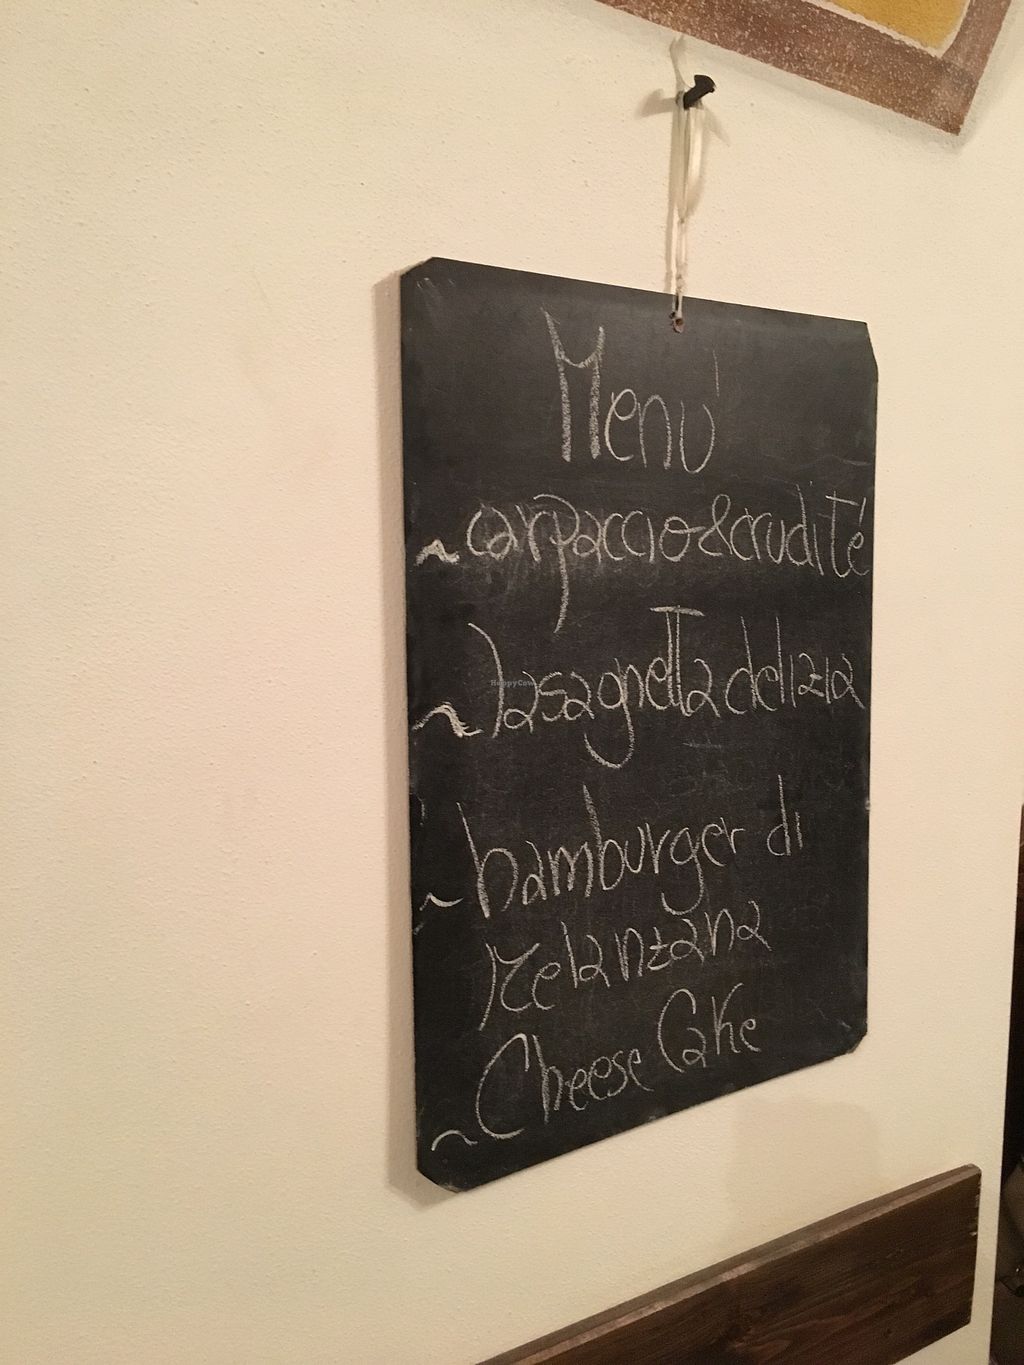 Menu'
~ carpaccio & crudité
~ lasagnetta delizia
~ hamburger di
Melanzana
~ Cheese Cake
HappyCow